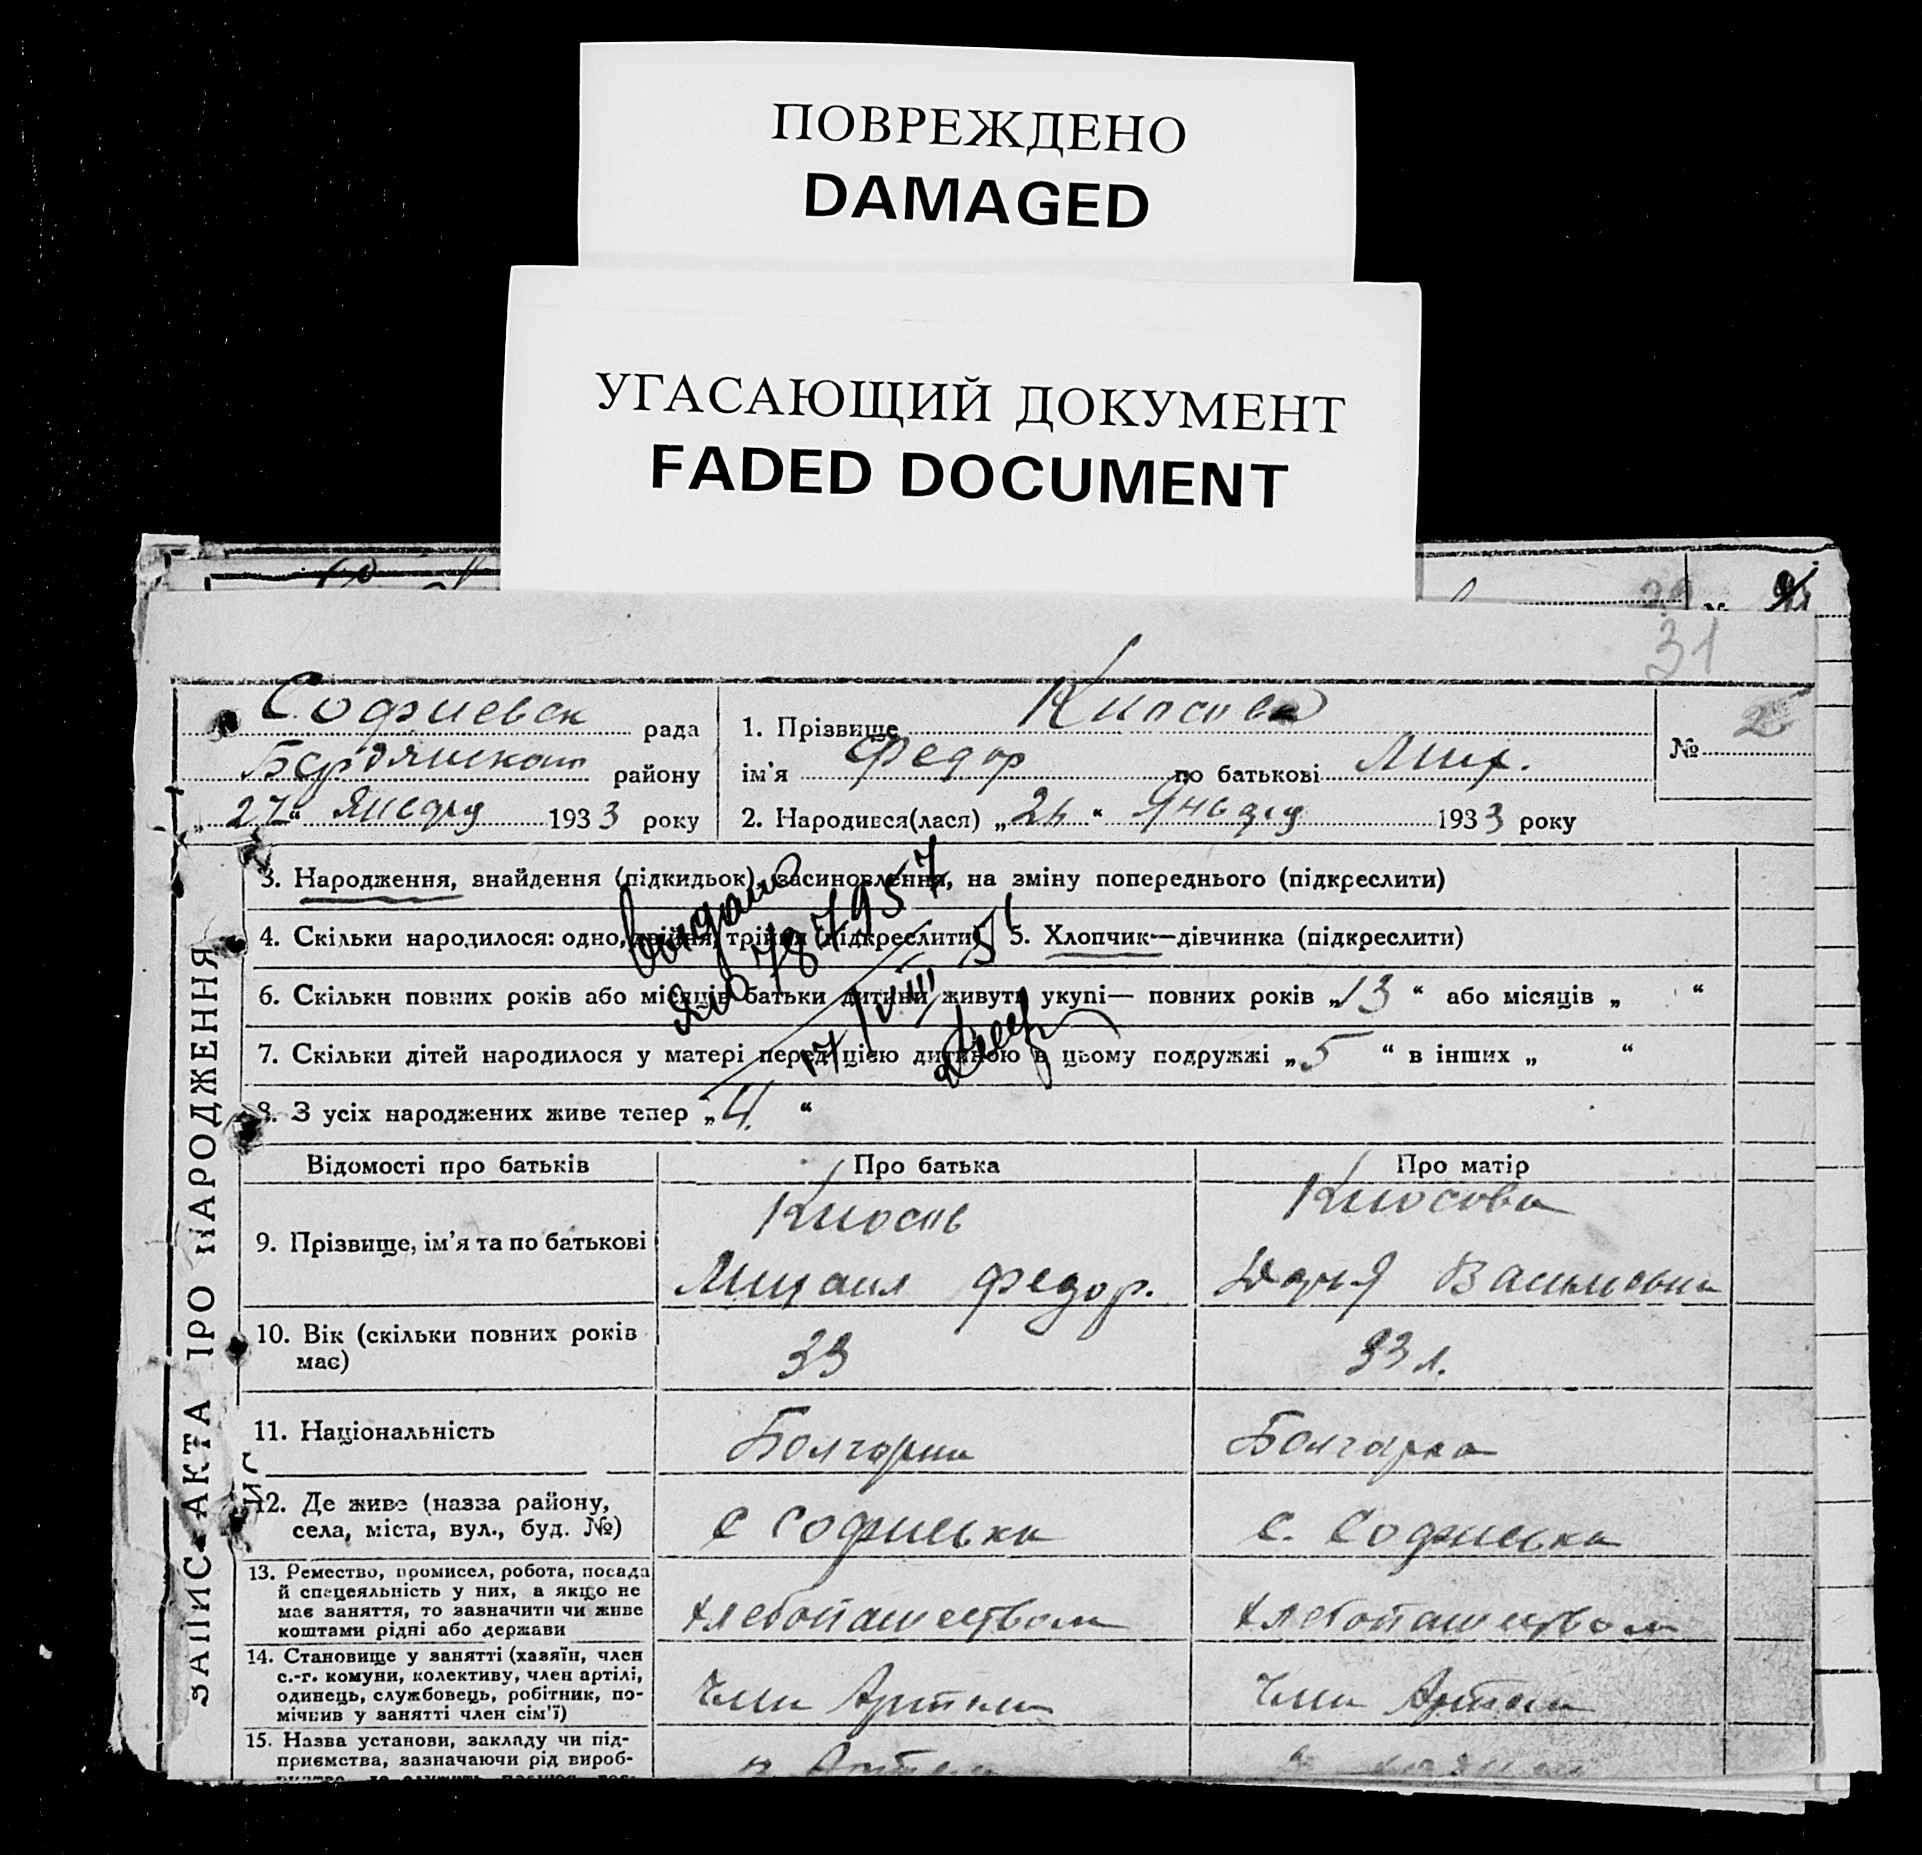 ПОВРЕЖДЕНО
DAMAGED
УГАСАЮЩИЙ ДОКУМЕНТ
FADED DOCUMENT
31
ЗАПИС АКТА ПРО НАРОДЖЕННЯ
Софиевск рада
Бердянском району
„27“ Января 1933 року
1. Прізвище Киосов
ім'я Федор по батькові Мих.
2. Народився(лася) „26“ Января 1933 року
№ 2
3. Народження, знайдення (підкидьок), засиновлення, на зміну попереднього (підкреслити)
4. Скільки народилося: одно, двійня, трійня (підкреслити) 5. Хлопчик—дівчинка (підкреслити)
6. Скільки повних років або місяців батьки дитини живуть укупі— повних років „13“ або місяців „ “
7. Скільки дітей народилося у матері перед цією дитиною в цьому подружжі „5“ в інших „ “
8. З усіх народжених живе тепер „4.“
Видано
787957
17/VIII 51
Відомості про батьків Про батька Про матір
9. Прізвище, ім'я та по батькові
Киосов
Михаил Федор.
Киосова
Дарья Васильевна
10. Вік (скільки повних років має)
33
33 л.
11. Національність
Болгарин
Болгарка
12. Де живе (назва району,
села, міста, вул., буд. №)
с Софиевка
с. Софиевка
13. Ремество, промисел, робота, посада
й спецеяльність у них, а якщо не
має заняття, то зазначити чи живе
коштами рідні або держави
хлебопашеством
хлебопашеством
14. Становище у занятті (хазяїн, член
с.-г. комуни, колективу, член артілі,
одинець, службовець, робітник, по-
мічник у занятті член сім'ї)
Член Артели
Член Артели
15. Назва установи, закладу чи під-
приємства, зазначаючи рід вироб-